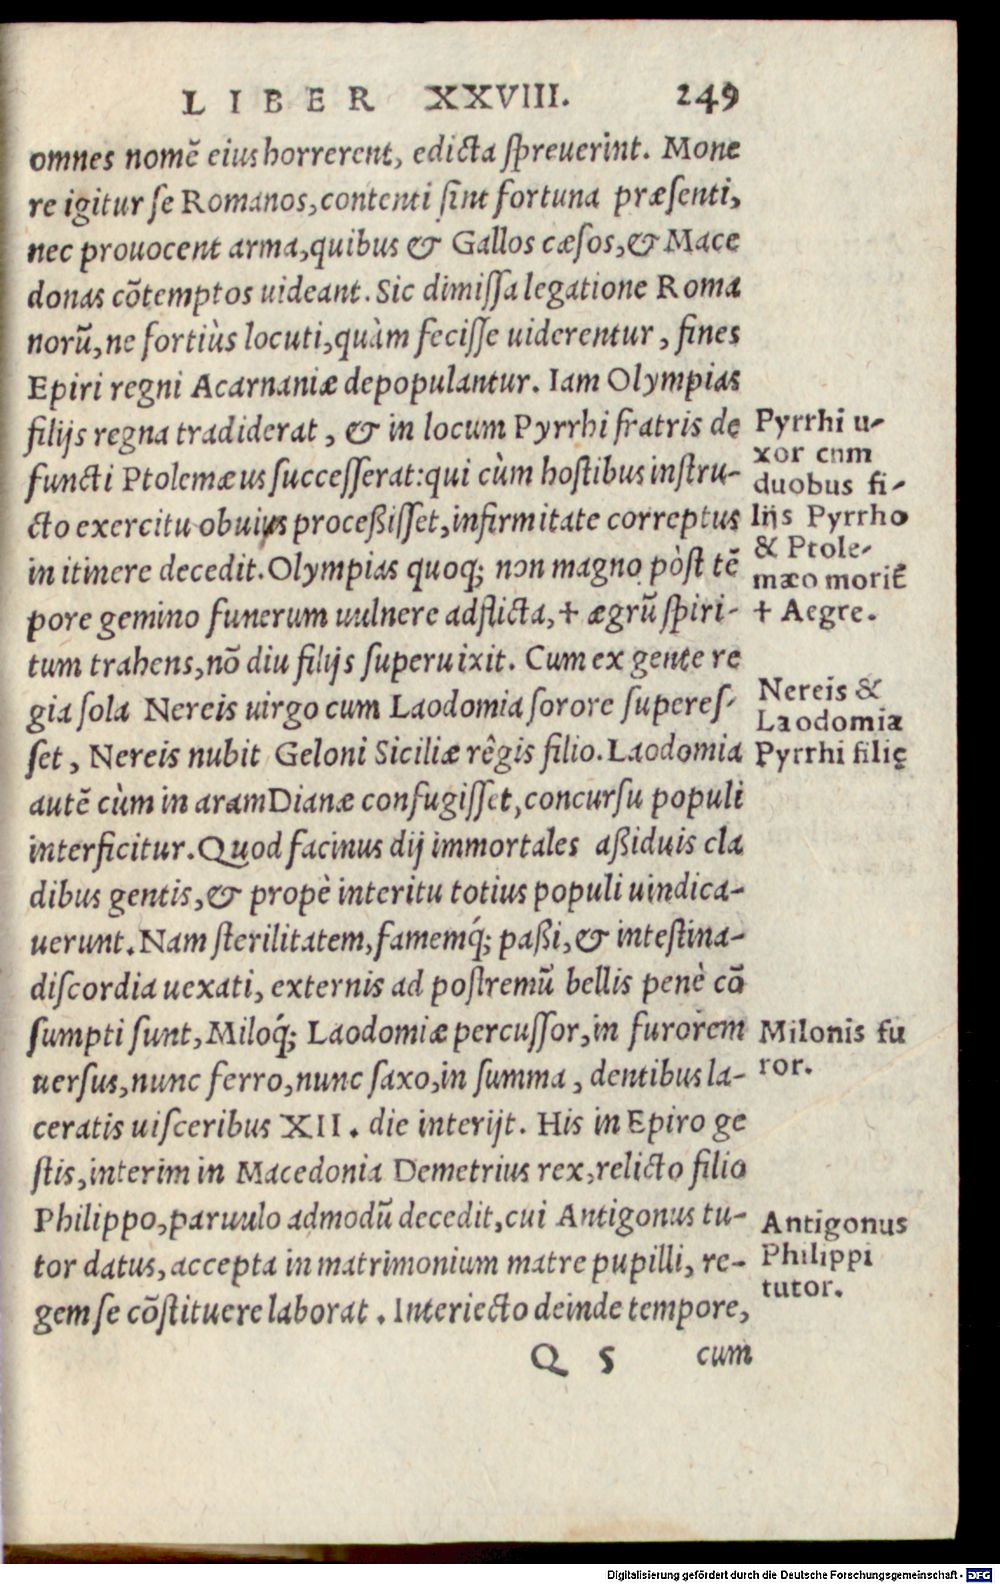 LIBER XXVIII. 249
omnes nomē eius horrerent, edicta spreuerint. Mone
re igitur se Romanos, contenti sint fortuna præsenti,
nec prouocent arma, quibus & Gallos cæsos, & Mace
donas cōtemptos uideant. Sic dimissa legatione Roma
norū, ne fortiùs locuti, quàm fecisse uiderentur, fines
Epiri regni Acarnaniæ depopulantur. Iam Olympias
filijs regna tradiderat, & in locum Pyrrhi fratris de
functi Ptolemæus successerat: qui cùm hostibus instru-
cto exercitu obuius proceßisset, infirmitate correptus
in itinere decedit. Olympias quoq; non magno pòst tē
pore gemino funerum uulnere adflicta, + ægrū spiri-
tum trahens, nō diu filijs superuixit. Cum ex gente re
gia sola Nereis uirgo cum Laodomia sorore superes-
set, Nereis nubit Geloni Siciliæ rêgis filio. Laodomia
autē cùm in aram Dianæ confugisset, concursu populi
interficitur. Quod facinus dij immortales aßiduis cla
dibus gentis, & propè interitu totius populi uindica-
uerunt. Nam sterilitatem, famemq́; paßi, & intestina-
discordia uexati, externis ad postremū bellis penè cō
sumpti sunt, Miloq́; Laodomiæ percussor, in furorem
uersus, nunc ferro, nunc saxo, in summa, dentibus la-
ceratis uisceribus XII. die interijt. His in Epiro ge
stis, interim in Macedonia Demetrius rex, relicto filio
Philippo, paruulo admodū decedit, cui Antigonus tu-
tor datus, accepta in matrimonium matre pupilli, re-
gem se cōstituere laborat. Interiecto deinde tempore,
Q 5 cum
Pyrrhi u-
xor cum
duobus fi-
liis Pyrrho
& Ptole-
mæo moritē
+ Aegre.
Nereis &
Laodomia
Pyrrhi filię
Milonis fu
ror.
Antigonus
Philippi
tutor.
Digitalisierung gefördert durch die Deutsche Forschungsgemeinschaft - DFG